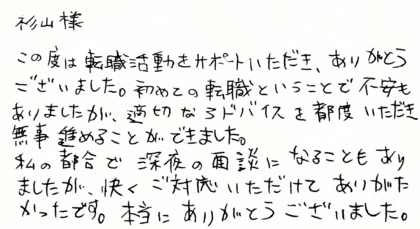 杉山様
この度は転職活動をサポートいただき、ありがとう
ございました。初めての転職ということで不安も
ありましたが、適切なアドバイスを都度いただき
無事進めることができました。
私の都合で深夜の面談になることもあり
ましたが、快くご対応いただけてありがた
かったです。本当にありがとうございました。